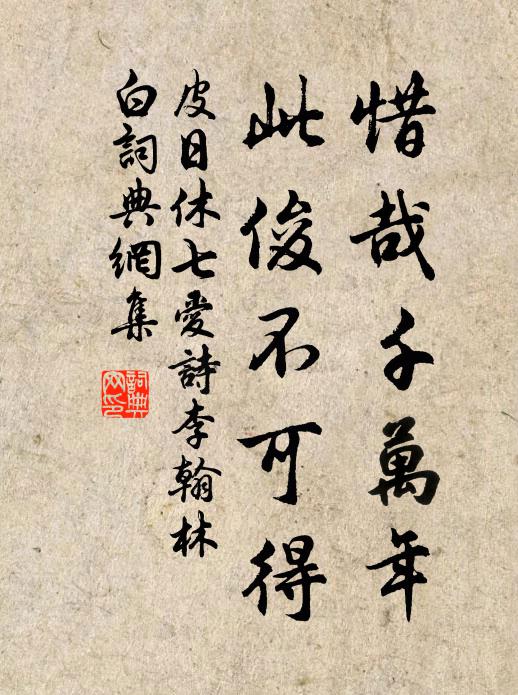 惜哉千萬年
此俊不可得
皮日休七愛詩李翰林
白詞典網集
詞典網印